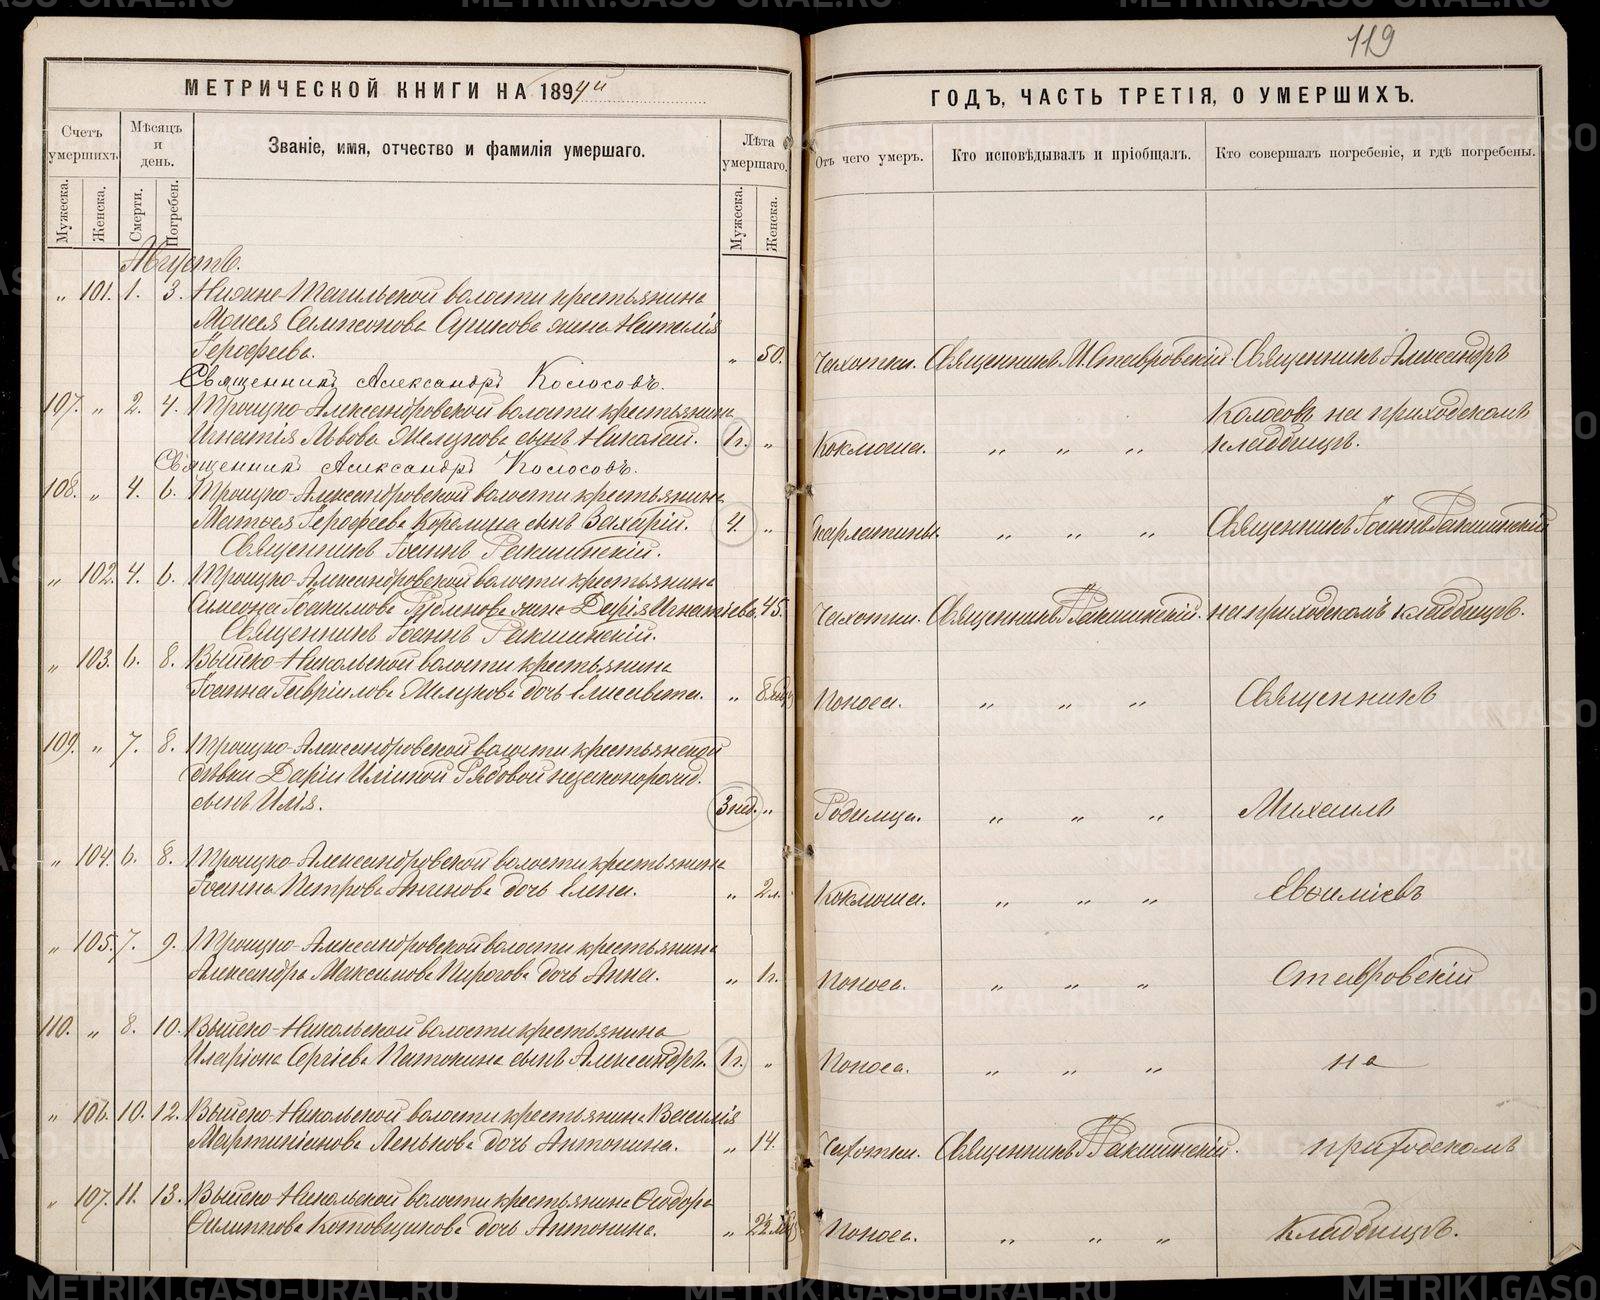 119
МЕТРИЧЕСКОЙ КНИГИ НА 1894й
ГОДЪ, ЧАСТЬ ТРЕТІЯ, О УМЕРШИХЪ.
Счетъ умершихъ.
Мѣсяцъ и день.
Званіе, имя, отчество и фамилія умершаго.
Лѣта умершаго.
Отъ чего умеръ.
Кто исповѣдывалъ и пріобщалъ.
Кто совершалъ погребеніе, и гдѣ погребены.
Мужеска.
Женска.
Смерти.
Погребен.
Мужеска.
Женска.
Августъ.
„ 101. 1. 3. Нижне-Тагильской волости крестьянина
Моисея Сампсонова жена Наталія
Герофеева. „ 50. Чахотки. Священникъ И. Ставровскій Священникъ Александръ
Священникъ Александръ Колосовъ.
107. „ 2. 4. Троицко-Александровской волости крестьянина Колосовъ на приходскомъ
Игнатія Львова сынъ Николай. 1г. „ Коклюша. „ „ „ кладбищѣ.
Священникъ Александръ Колосовъ.
108. „ 4. 6. Троицко-Александровской волости крестьянина
Матвея Герофеева Корелина сынъ Захарій. 4. „ Скарлатины. „ „ „ Священникъ Іоаннъ Ракшинскій
Священникъ Іоаннъ Ракшинскій.
„ 102. 4. 6. Троицко-Александровской волости крестьянина
Симеона Іоакимова жена Дарія Игнатіева. 45. Чахотки. Священникъ І. Ракшинскій. на приходскомъ кладбищѣ.
Священникъ Іоаннъ Ракшинскій.
„ 103. 6. 8. Выйско-Никольской волости крестьянина
Іоанна Гавріилова дочь Елисавета. „ 8 мѣс. Поноса. „ „ „ Священникъ
109. „ 7. 8. Троицко-Александровской волости крестьянской
дѣвки Даріи Иліиной Рябовой незаконорожд.
сынъ Илія. 3 нед. „ Родимца. „ „ „ Михаилъ
„ 104. 6. 8. Троицко-Александровской волости крестьянина
Іоанна Петрова дочь Елена. „ 2г. Коклюша. „ „ „ Евѳиміевъ
„ 105. 7. 9. Троицко-Александровской волости крестьянина
Александра Максимова Пирогова дочь Анна. „ 1г. Поноса. „ „ „ Ставровскій
110. „ 8. 10. Выйско-Никольской волости крестьянина
Иларіона Сергіева Патокина сынъ Александръ. 1г. „ Поноса. „ „ „ на
„ 106. 10. 12. Выйско-Никольской волости крестьянина Василія
Мартиніанова Ленькова дочь Антонина. „ 14. Чахотки. Священникъ І. Ракшинскій. приходскомъ
„ 107. 11. 13. Выйско-Никольской волости крестьянина Ѳеодора
Филиппова Котовщикова дочь Антонина. „ Поноса. „ „ „ кладбищѣ.
METRIKI.GASO-URAL.RU